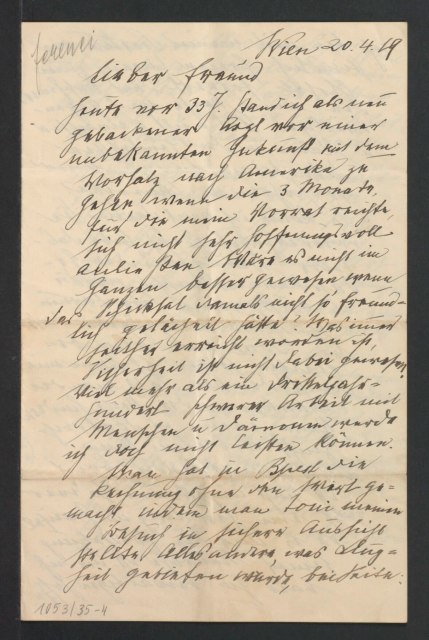 ferenczi
Wien 20.4.19
lieber Freund
Heute vor 33 J. stand ich als neu
gebackener Arzt vor einer
unbekannten Zukunft mit dem
Vorsatz nach Amerika zu
gehen wenn die 3 Monate,
für die mein Vorrat reichte,
sich nicht sehr hoffnungsvoll
anließen. Wäre es nicht im
Ganzen besser gewesen wenn
das Schicksal damals nicht so freund-
lich gelächelt hätte? Was immer
seither erreicht worden ist,
Sicherheit ist nicht dabei gewesen.
Viel mehr als ein Dritteljahr-
hundert schwerer Arbeit mit
Menschen u Dämonen werde
ich doch nicht leisten können.
Man hat in Bpest die
Rechnung ohne den Wirt ge-
macht indem man Toni meinen
Besuch in sichere Aussicht
stellte. Alles andere, was Klug-
heit gebieten würde, bei Seite:
1053/35-4